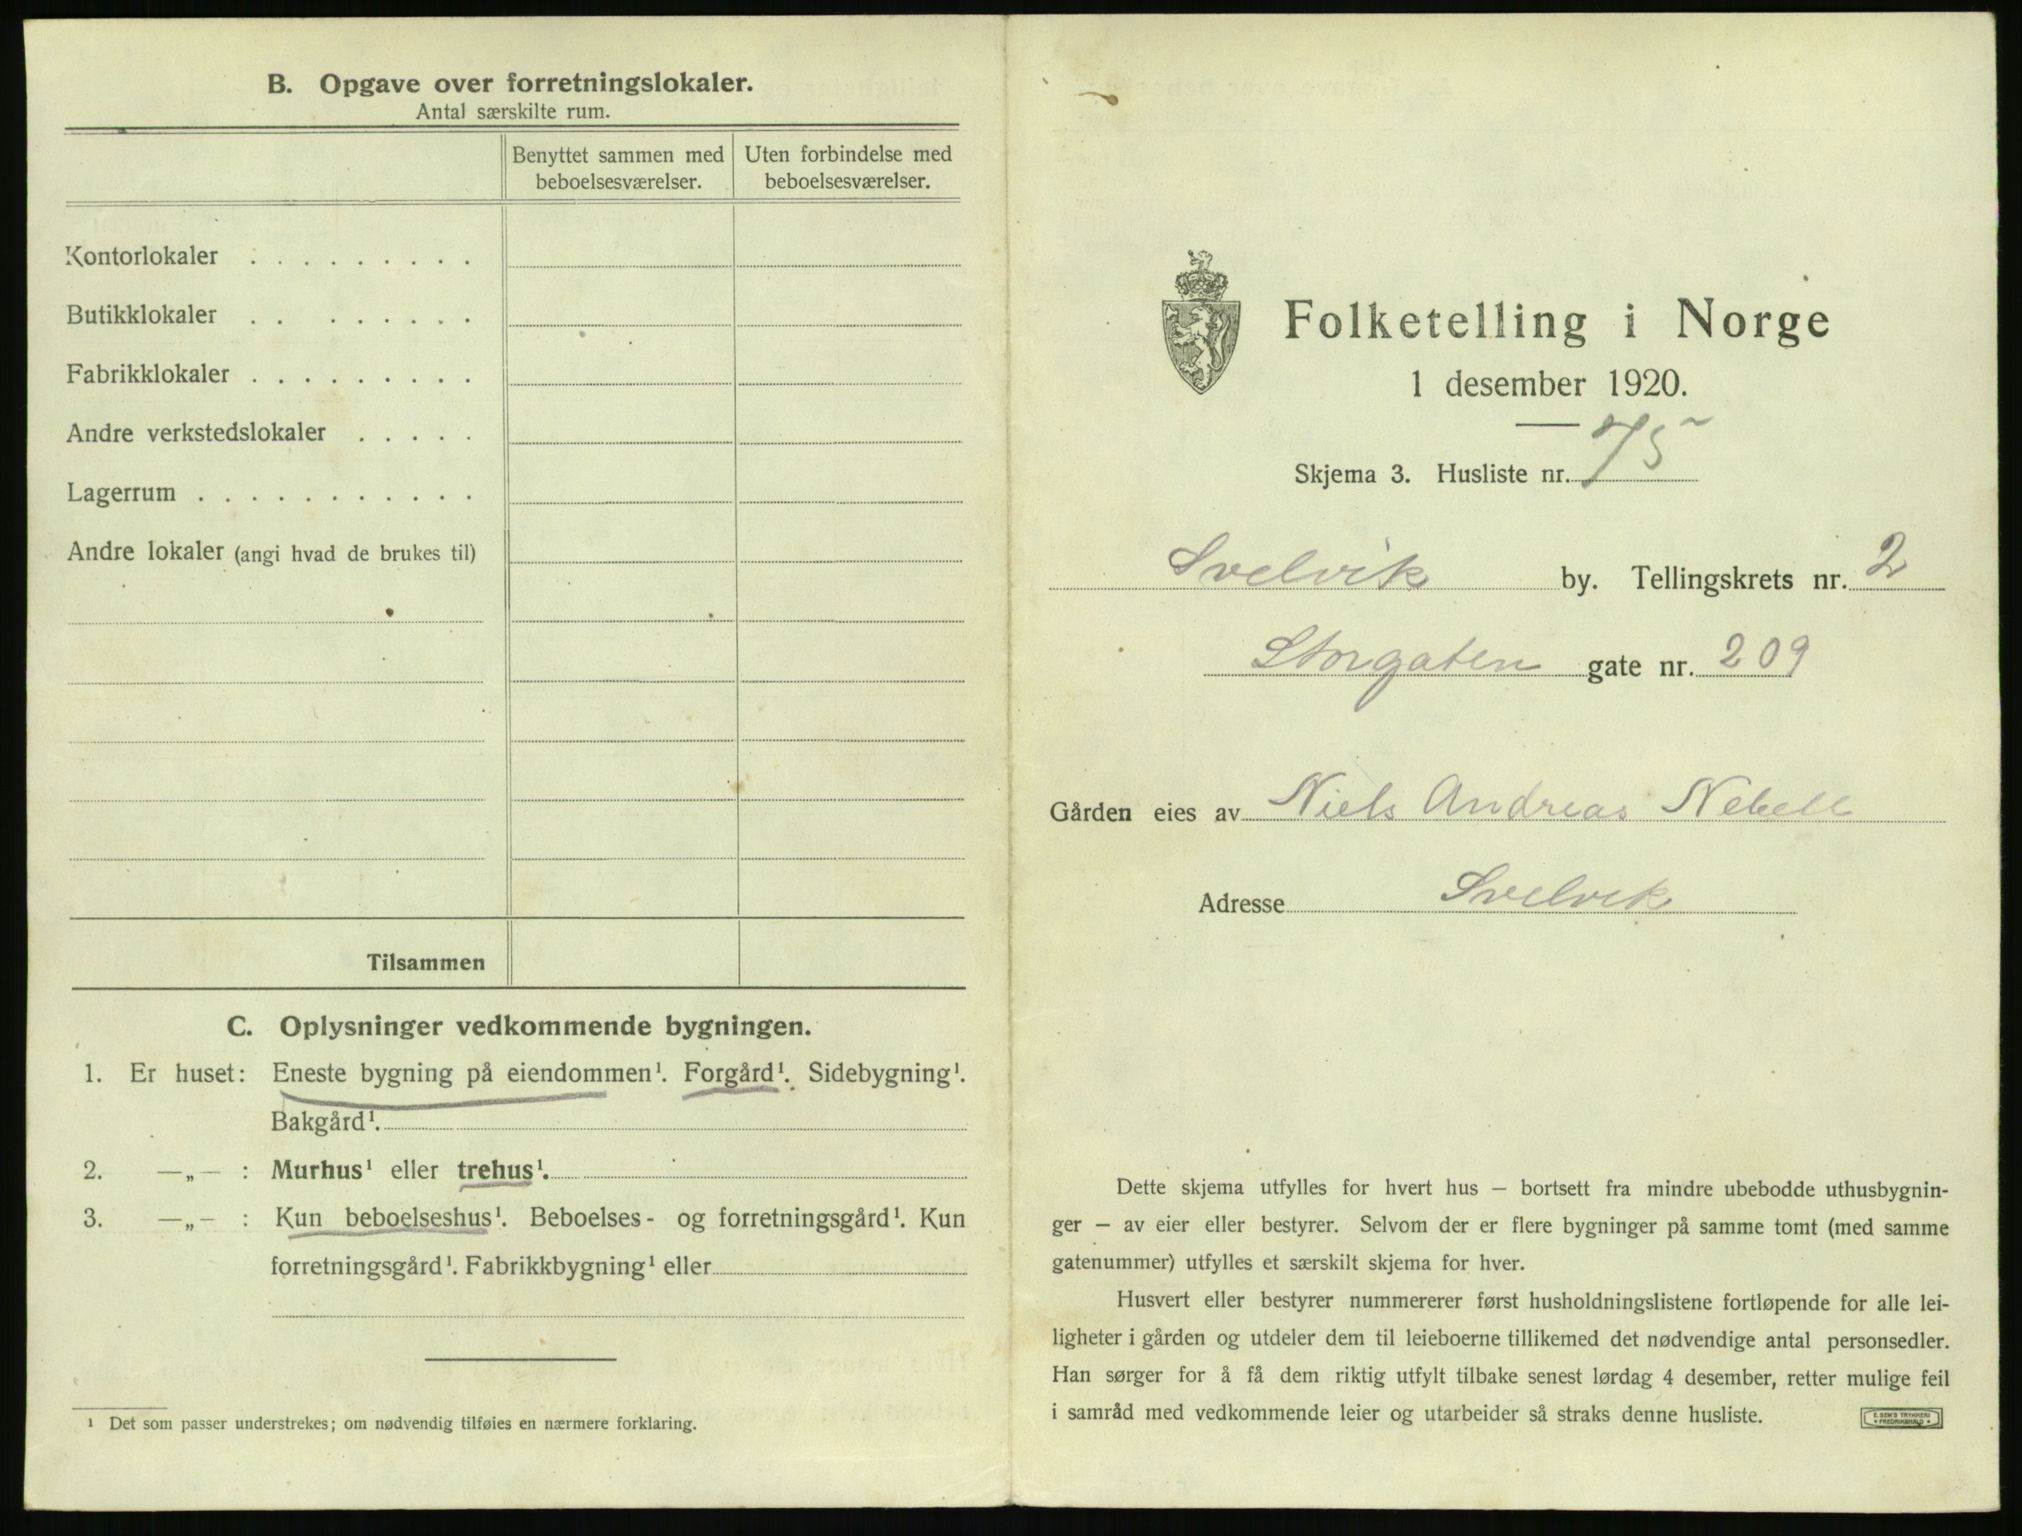 B. Opgave over forretningslokaler.
Antal særskilte rum.
Benyttet sammen med beboelsesværelser.
Uten forbindelse med beboelsesværelser.
Kontorlokaler . . . . . . . . .
Butikklokaler . . . . . . . .
Fabrikklokaler . . . . . . . . .
Andre verkstedslokaler . . . . .
Lagerrum . . . . . . . . . . .
Andre lokaler (angi hvad de brukes til)
Tilsammen
C. Oplysninger vedkommende bygningen.
1. Er huset: Eneste bygning på eiendommen¹. Forgård¹. Sidebygning¹.
Bakgård¹.
2. —„— : Murhus¹ eller trehus¹.
3. —„— : Kun beboelseshus¹. Beboelses- og forretningsgård¹. Kun
forretningsgård¹. Fabrikkbygning¹ eller
¹ Det som passer understrekes; om nødvendig tilføies en nærmere forklaring.
Folketelling i Norge
1 desember 1920.
Skjema 3. Husliste nr. 75
Svelvik by. Tellingskrets nr. 2
Storgaten gate nr. 209
Gården eies av Niels Andreas Nebell
Adresse Svelvik
Dette skjema utfylles for hvert hus — bortsett fra mindre ubebodde uthusbygnin-
ger — av eier eller bestyrer. Selvom der er flere bygninger på samme tomt (med samme
gatenummer) utfylles et særskilt skjema for hver.
Husvert eller bestyrer nummererer først husholdningslistene fortløpende for alle lei-
ligheter i gården og utdeler dem til leieboerne tillikemed det nødvendige antal personsedler.
Han sørger for å få dem riktig utfylt tilbake senest lørdag 4 desember, retter mulige feil
i samråd med vedkommende leier og utarbeider så straks denne husliste.
E. SEM'S TRYKKERI
FREDRIKSHALD